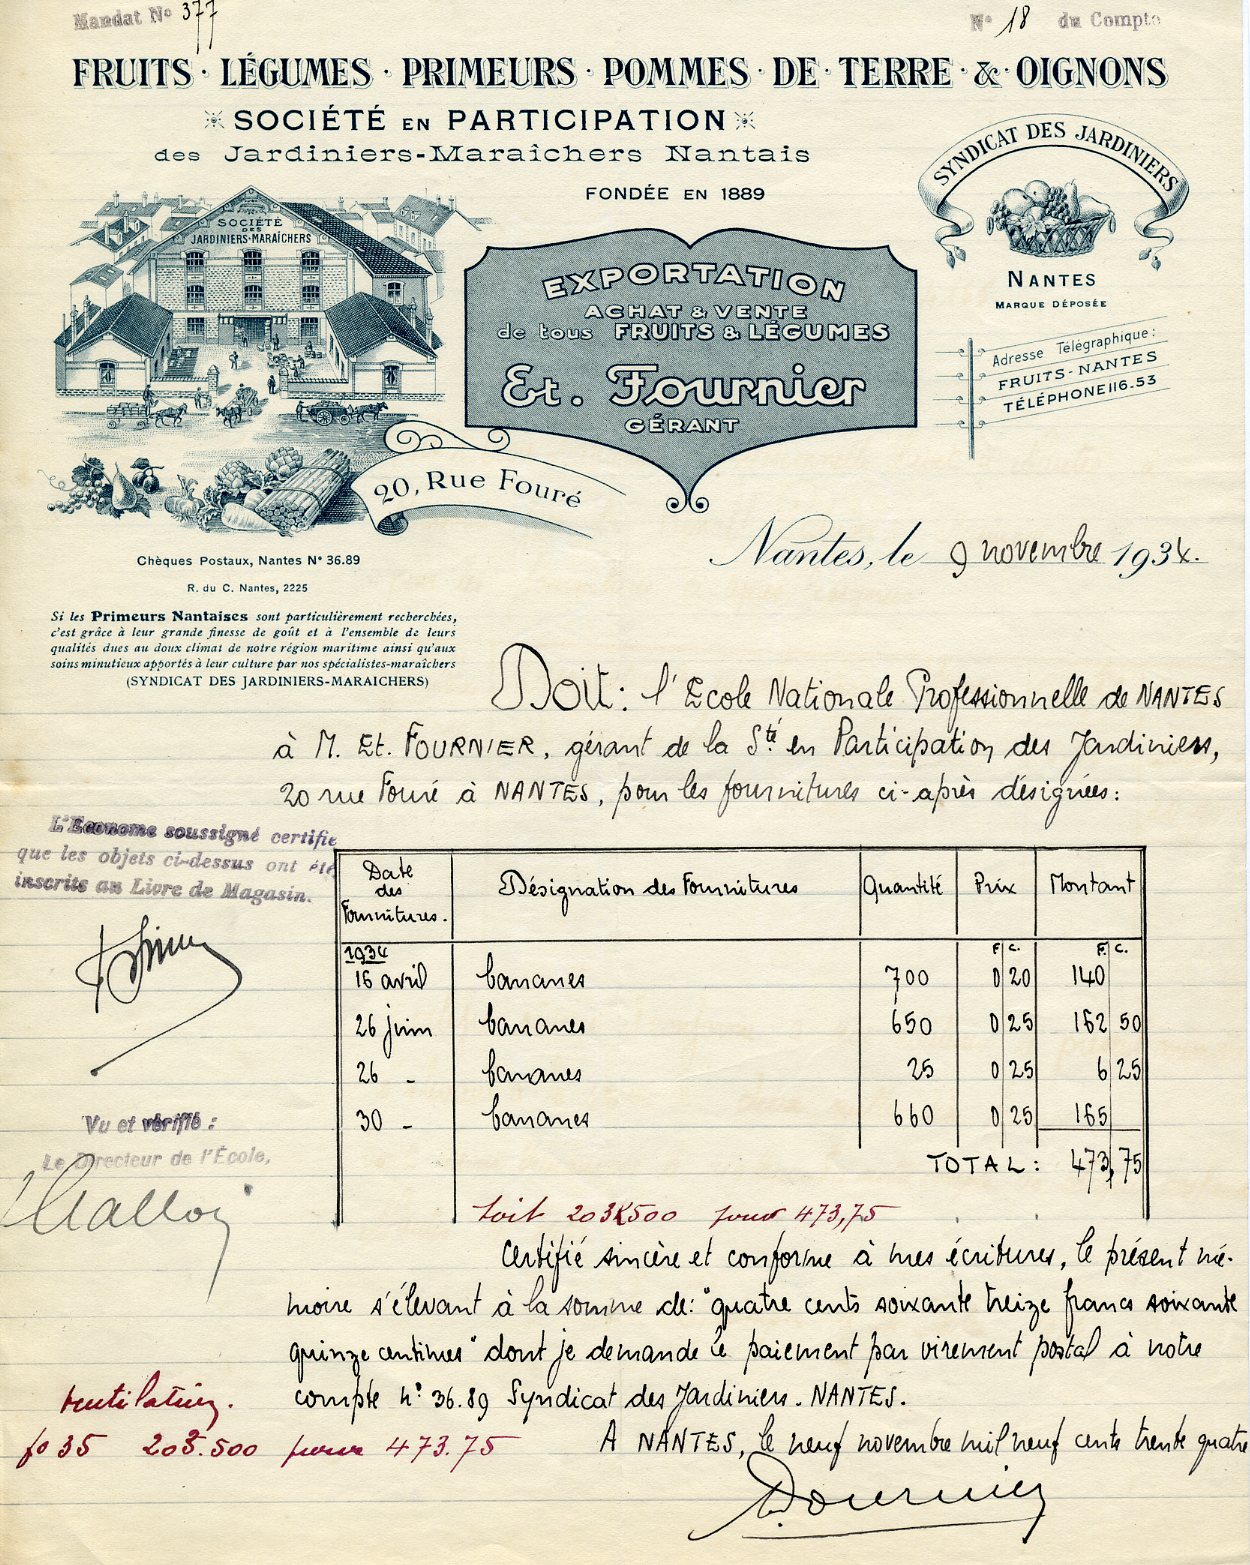 Mandat No 377
No 18 du Compte
FRUITS · LÉGUMES · PRIMEURS · POMMES · DE · TERRE · & · OIGNONS
SOCIÉTÉ EN PARTICIPATION
des Jardiniers-Maraîchers Nantais
FONDÉE EN 1889
SYNDICAT DES JARDINIERS
NANTES
MARQUE DÉPOSÉE
SOCIÉTÉ
DES
JARDINIERS-MARAÎCHERS
EXPORTATION
ACHAT & VENTE
de tous FRUITS & LÉGUMES
Et. Fournier
GÉRANT
Adresse Télégraphique:
FRUITS-NANTES
TÉLÉPHONE 116.53
20, Rue Fouré
Nantes, le 9 novembre 1934.
Chèques Postaux, Nantes No 36.89
R. du C. Nantes, 2225
Si les Primeurs Nantaises sont particulièrement recherchées,
c'est grâce à leur grande finesse de goût et à l'ensemble de leurs
qualités dues au doux climat de notre région maritime ainsi qu'aux
soins minutieux apportés à leur culture par nos spécialistes-maraîchers
(SYNDICAT DES JARDINIERS-MARAICHERS)
Doit: l'Ecole Nationale Professionnelle de NANTES
à M. Et. FOURNIER, gérant de la Sté en Participation des Jardiniers,
20 rue Fouré à NANTES, pour les fournitures ci-après désignées:
L'Econome soussigné certifie
que les objets ci-dessus ont été
inscrits au Livre de Magasin.
Date des Fournitures. Désignation des Fournitures Quantité Prix Montant
1934 F. C. F. C.
16 avril bananes 700 0 20 140
26 juin bananes 650 0 25 162 50
26 - bananes 25 0 25 6 25
30 - bananes 660 0 25 165
TOTAL: 473,75
Vu et vérifié:
Le Directeur de l'École,
soit 203k500 pour 473,75
Certifié sincère et conforme à mes écritures, le présent mé-
moire s'élevant à la somme de: "quatre cents soixante treize francs soixante
quinze centimes" dont je demande le paiement par virement postal à notre
compte no 36.89 Syndicat des Jardiniers. NANTES.
ventilation.
fo 35 203.500 pour 473.75
A NANTES, le neuf novembre mil neuf cents trente quatre
Fournier